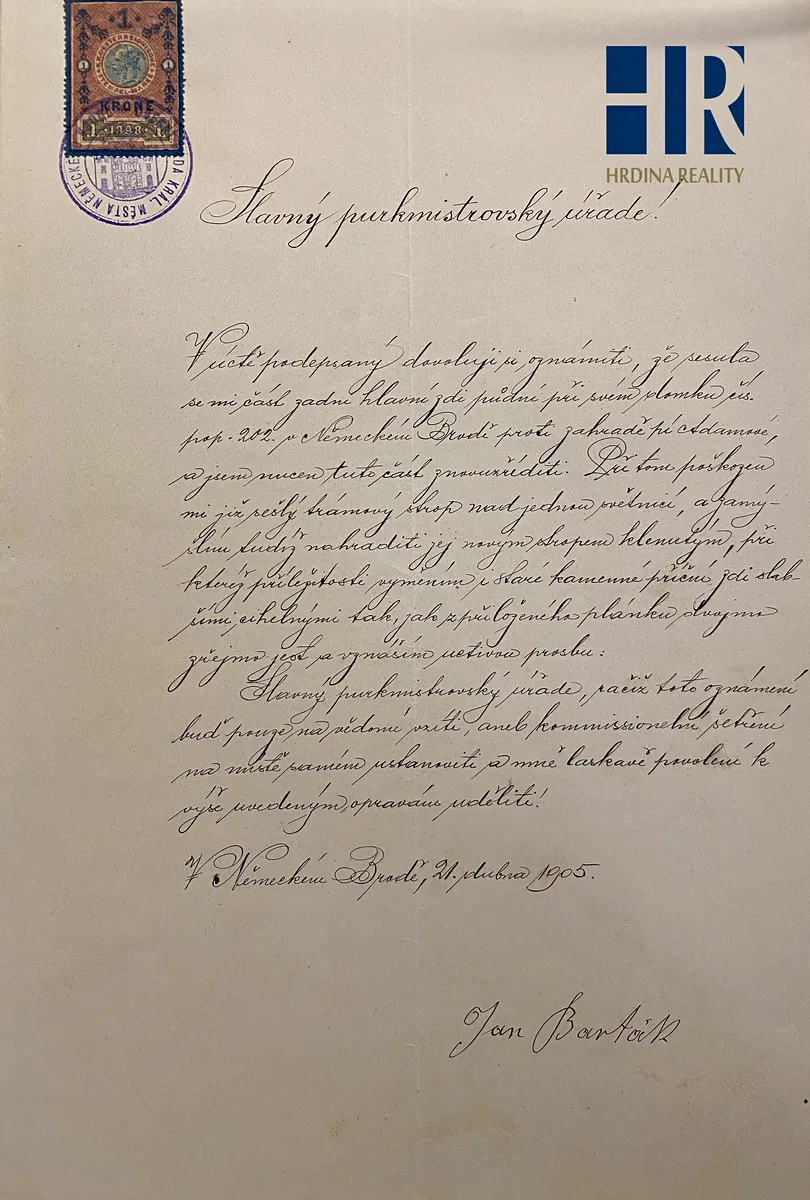 1
K.K. OESTERREICHISCHE STEMPEL-MARKE
1 1
KRONE
1 1898 1
DA KRÁL. MĚSTA NĚMECKÉ
HR
HRDINA REALITY
Slavný purkmistrovský úřade!
V úctě podepsaný dovoluji si oznámiti, že sesula
se mi část zadní hlavní zdi půdní při svém domku čís.
pop. 202. v Německém Brodě proti zahradě pí Adamové,
a jsem nucen tuto část znovuzříditi. Při tom poškozen
mi již sešlý trámový strop nad jednou světnicí, a zamý-
šlím tudíž nahraditi jej novým stropem klenutým, při
kteréž příležitosti vyměním i staré kamenné příční zdi slab-
šími cihelnými tak, jak z přiloženého plánku dvojmo
zřejmo jest a vznáším uctivou prosbu:
Slavný purkmistrovský úřade, račiž toto oznámení
buď pouze na vědomí vzíti, aneb kommissionelní šetření
na místě samém ustanoviti a mně laskavě povolení k
výše uvedeným opravám uděliti!
V Německém Brodě, 21. dubna 1905.
Jan Barták